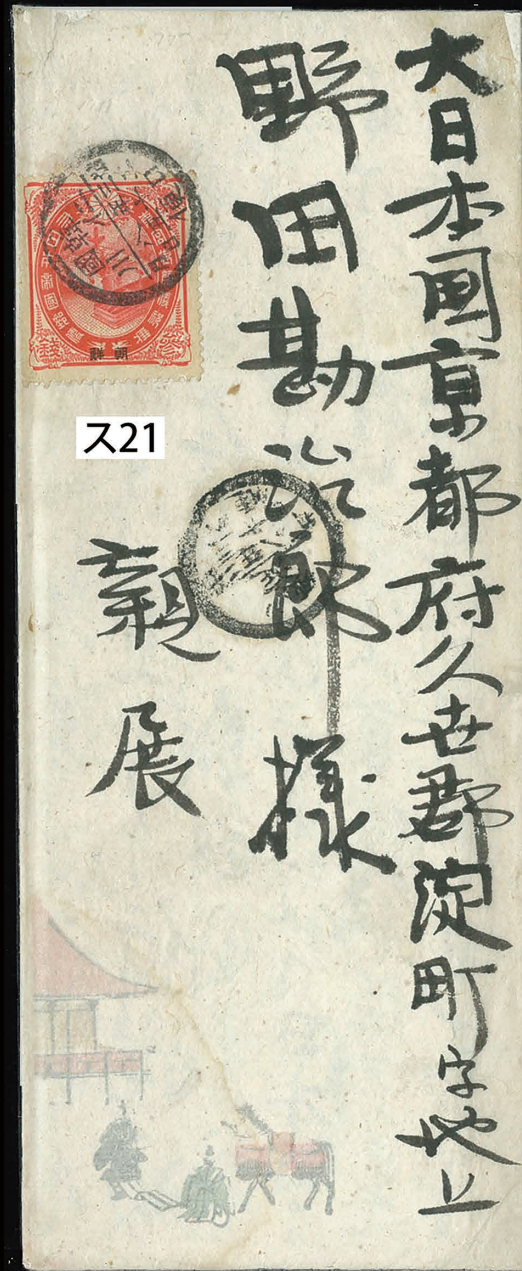 大日本国京都府久世郡淀町字地上
野田勘治郎様
親展
ス21
朝鮮